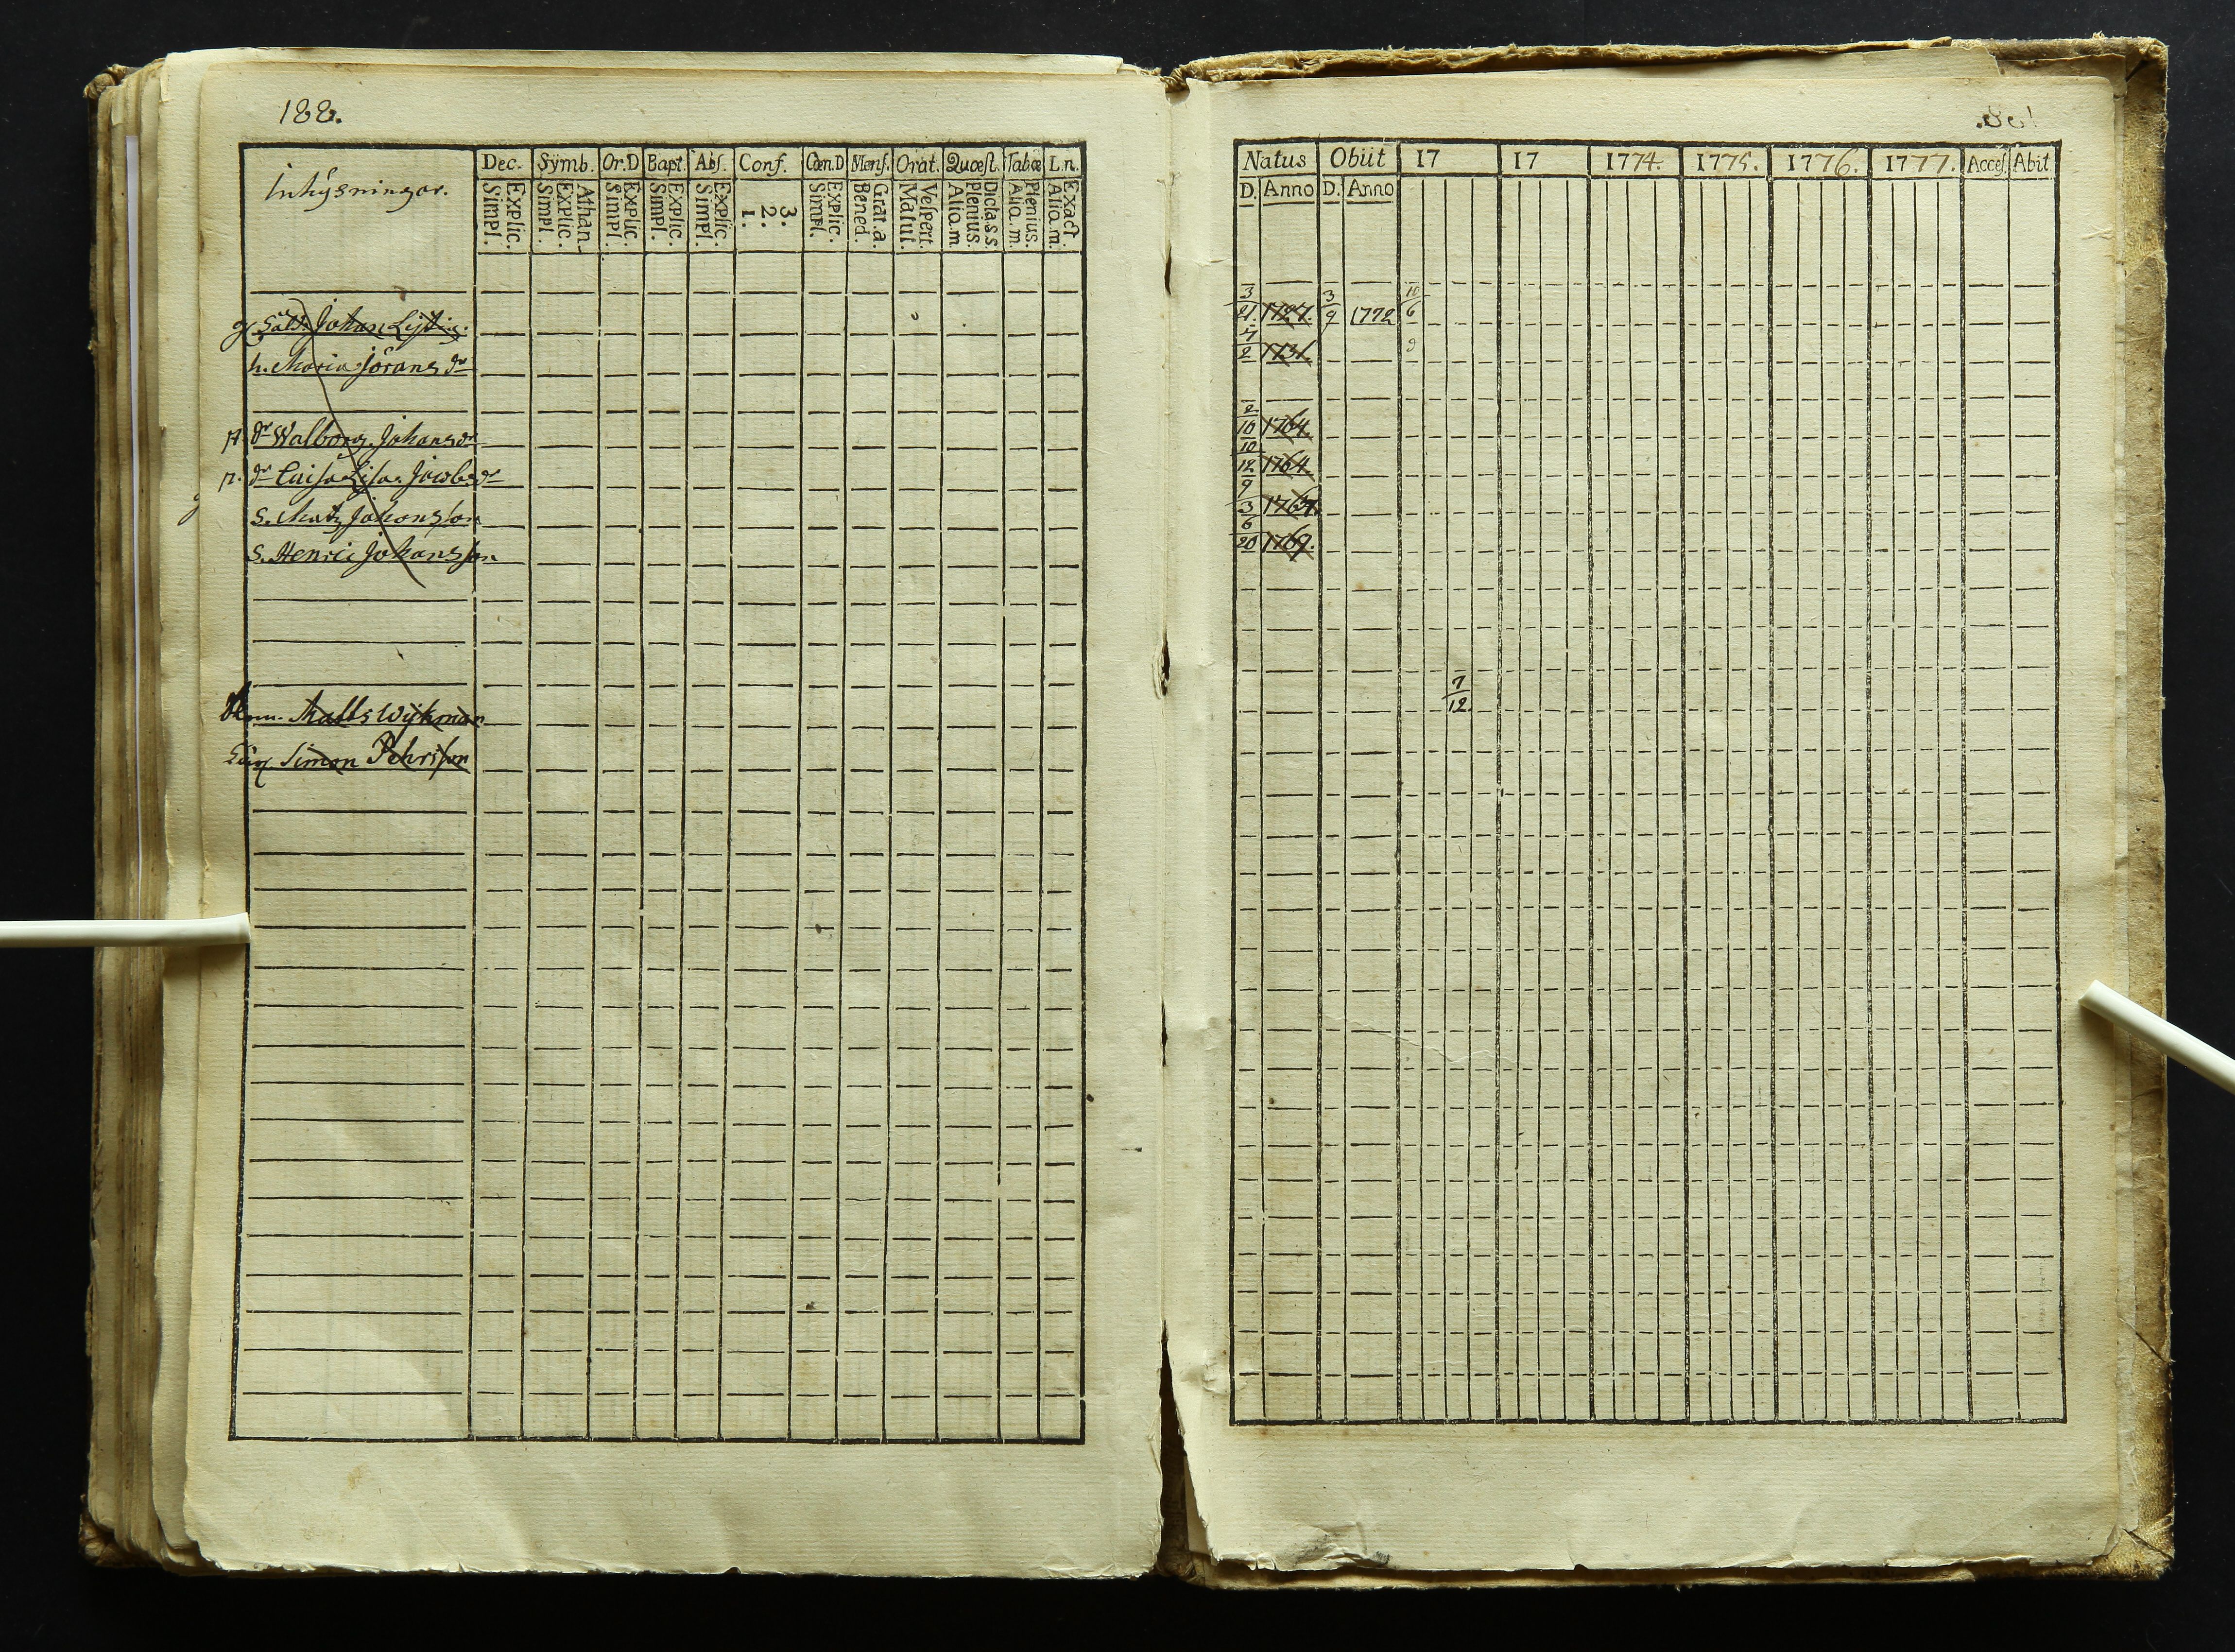 188.
Inhysningar.
Dec. Sÿmb. Or.D Bapt. Abs. Conf. Cœn.D Mens. Orat. Quæst. Tabœ L.n.
Explic. Simpl. Athan. Explic. Simpl. Explic. Simpl. Explic. Simpl. Explic. Simpl. 3. 2. 1. Explic. Simpl. Grat.a. Bened. Vespert. Matut. Dictass. Plenius. Alio.m. Plenius. Alia.m. Exact. Alia.m.
Sold. Johan
h. Maria Jörans dr
dr Walborg Johans dr
dr Caisa Lisa Jacobs dr
S. Matz Johansson
S. Henric Johansson
Matts Wijkman
Simon Pehrsson
Natus Obiit 17 17 1774. 1775. 1776. 1777. Acces. Abit
D. Anno D. Anno
3/21 1727. 3/9 1772 10/6
7/2 1731.
2/10 1764.
10/12 1764.
9/3 1767.
6/20 1769.
7/12